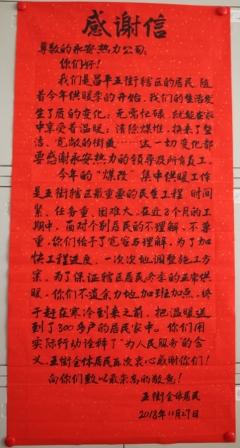 感谢信
尊敬的永安热力公司:
你们好!
我们是昌平五街辖区的居民,随
着今年供暖季的开始,我们的生活发
生了质的变化:无需忙碌,就能在家
中享受着温暖;清除煤堆,换来了整
洁、宽敞的街巷……这一切变化都
要感谢永安热力的领导及所有员工。
今年的“煤改”集中供暖工作
是五街辖区最重要的民生工程,时间
紧、任务重、困难大。在近3个月的工
期中,面对个别居民的不理解、不尊
重,你们给予了宽容与理解,为了加
快工程进度,一次次地调整施工方
案。为了保证辖区居民冬季的正常供
暖,你们不遗余力地加班加点,终
于赶在寒冷到来之前,把温暖送
到了300多户的居民家中。你们用
实际行动诠释了“为人民服务”的含
义,五街全体居民再次衷心感谢你们!
向你们致以最崇高的敬意!
五街全体居民
2018年11月27日